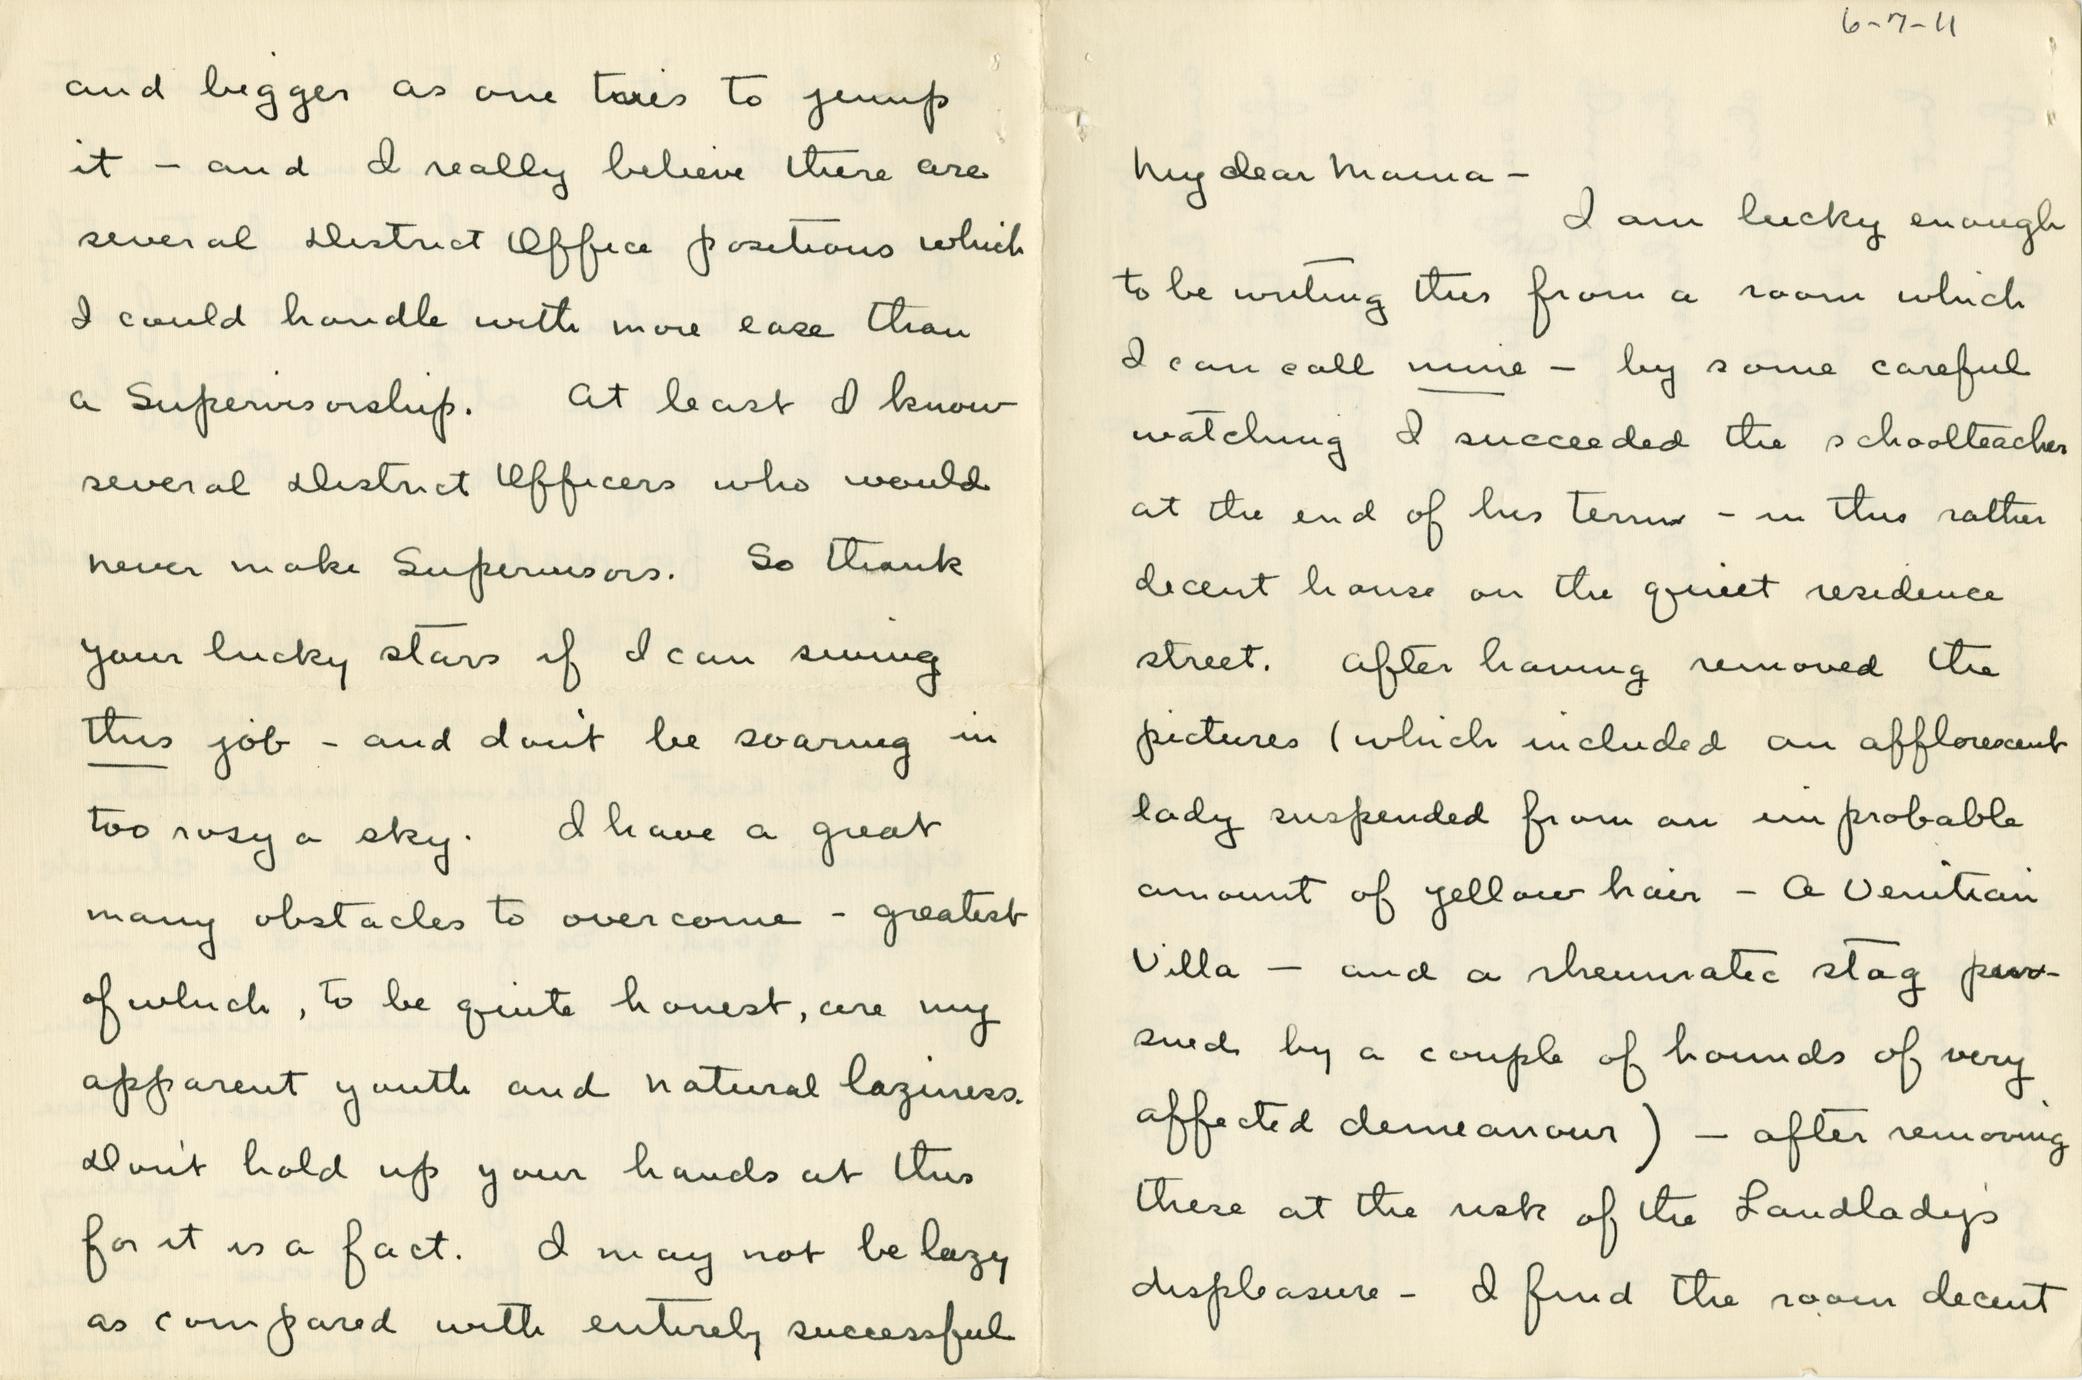 6-7-11
My dear Mama -
I am lucky enough
to be writing this from a room which
I can call mine - by some careful
watching I succeeded the schoolteacher
at the end of his term - in this rather
decent house on the quiet residence
street. After having removed the
pictures (which included an afflorescent
lady suspended from an improbable
amount of yellow hair - A Venitian
Villa - and a rheumatic stag pur-
sued by a couple of hounds of very
affected demeanour) - after removing
these at the risk of the Landlady's
displeasure - I find the room decent
and bigger as one tries to jump
it - and I really believe there are
several District Office positions which
I could handle with more ease than
a Supervisorship. At least I know
several District Officers who would
never make Supervisors. So thank
your lucky stars if I can swing
this job - and don't be soaring in
too rosy a sky. I have a great
many obstacles to overcome - greatest
of which, to be quite honest, are my
apparent youth and natural laziness.
Don't hold up your hands at this
for it is a fact. I may not be lazy
as compared with entirely successful